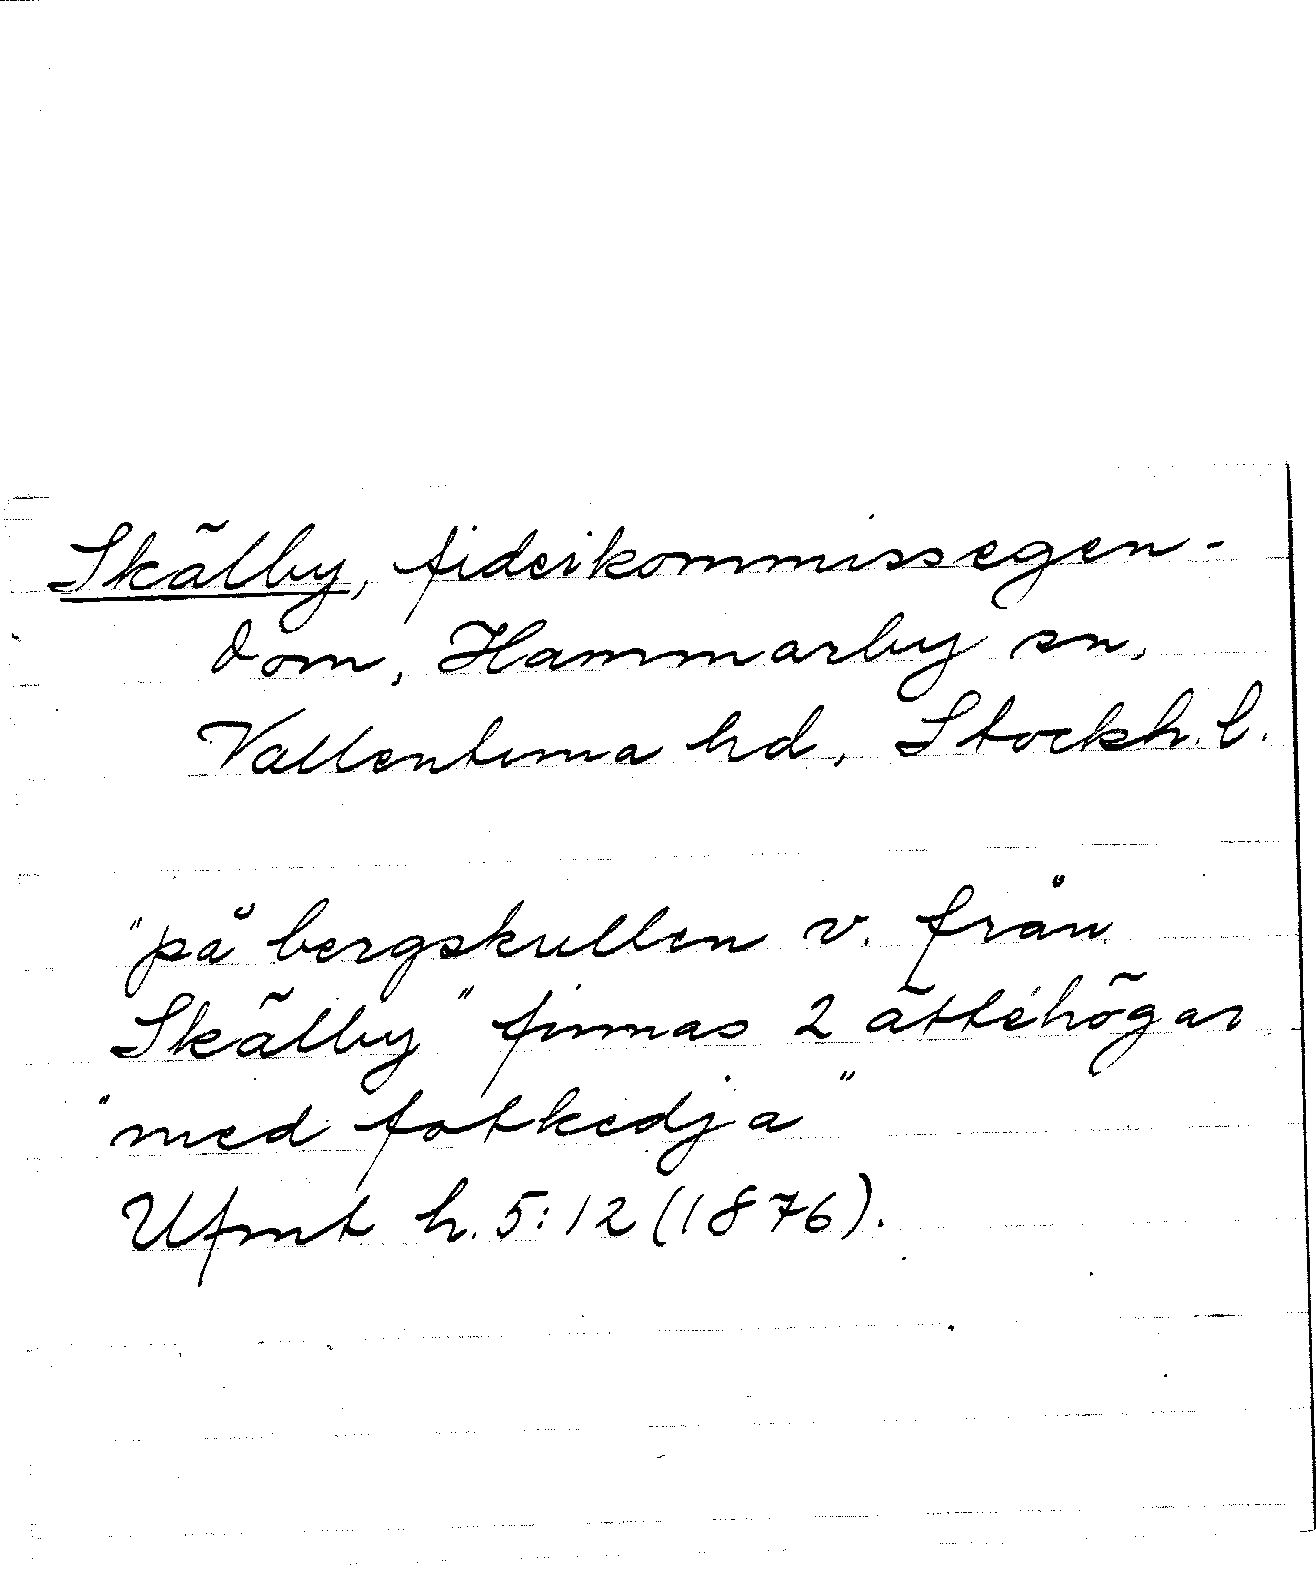 Skälby, fideikommissegen-
dom, Hammarby sn,
Vallentuna hd, Stockh. l.
"på bergskullen v. från
Skälby" finnas 2 ättehögar
"med fotkedja"
Ufmt h. 5:12 (1876).